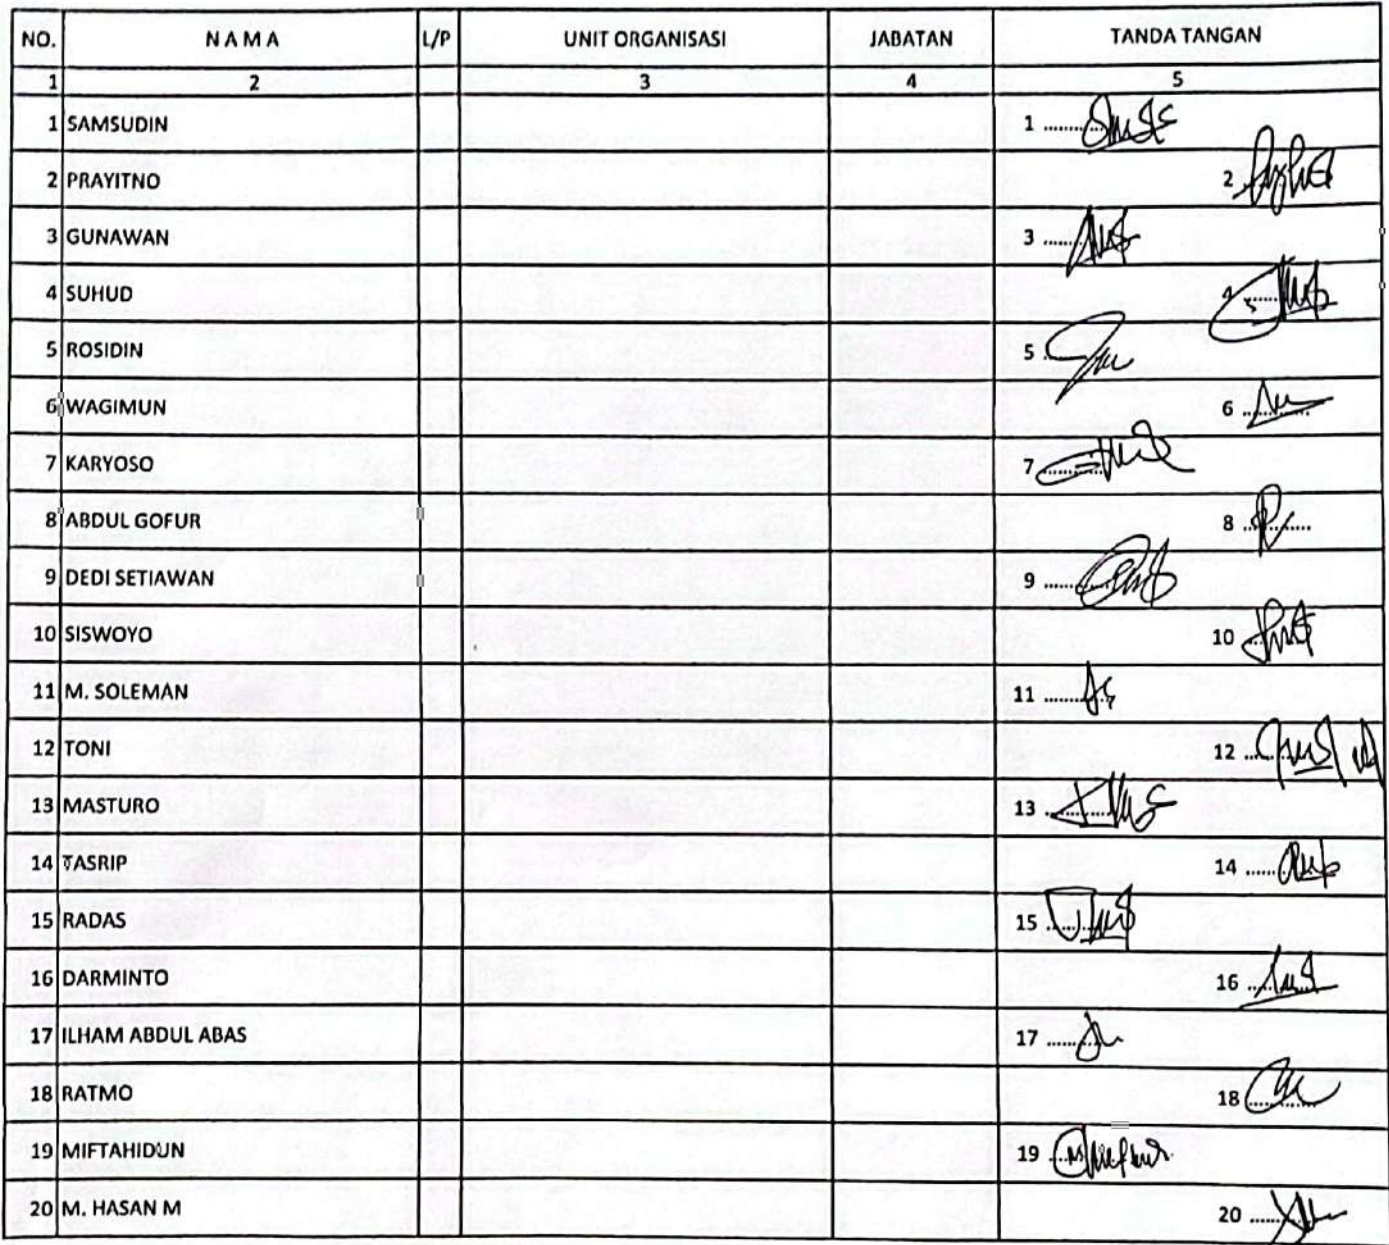 NO. N A M A L/P UNIT ORGANISASI JABATAN TANDA TANGAN
1 2 3 4 5
1 SAMSUDIN 1 ..........
2 PRAYITNO 2
3 GUNAWAN 3 ..........
4 SUHUD 4 ..........
5 ROSIDIN 5 ..
6 WAGIMUN 6 ..........
7 KARYOSO 7 ..........
8 ABDUL GOFUR 8 ..........
9 DEDI SETIAWAN 9 ..........
10 SISWOYO 10 ...
11 M. SOLEMAN 11 ..........
12 TONI 12 ..........
13 MASTURO 13 ..........
14 TASRIP 14 ......
15 RADAS 15 ..........
16 DARMINTO 16 ..........
17 ILHAM ABDUL ABAS 17 ..........
18 RATMO 18 ..........
19 MIFTAHIDUN 19 ..........
20 M. HASAN M 20 ..........